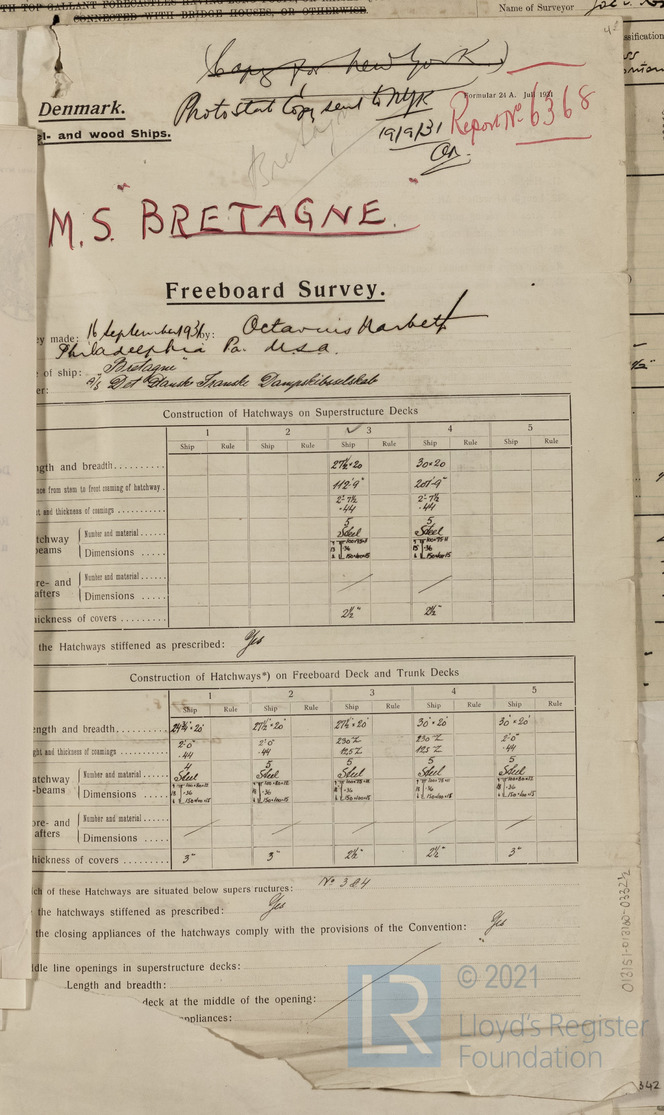 TH TOP GALLANT FORECASTLES HAVING
CONNECTED WITH BRIDGE HOUSES, OR OTHERWISE.
Name of Surveyor
(Copy for New York)
Denmark.
Photostat Copy sent to NYK
Formular 24 A. Juli 1931
el- and wood Ships.
19/9/31
Report No 6368
Bretagne
M.S. "BRETAGNE."
Freeboard Survey.
ey made: 16 September 1931 by: Octavius Narbeth
Philadelphia Pa. U.S.A.
of ship: "Bretagne"
er: A/S Det Dansk Franske Dampskibsselskab
Construction of Hatchways on Superstructure Decks
1 2 3 4 5
Ship Rule Ship Rule Ship Rule Ship Rule Ship Rule
ngth and breadth 27½×20 30×20
nce from stem to front coaming of hatchway 112'-9" 201'-9"
t and thickness of coamings 2'-7½ .44 2'-7½ .44
tchway beams Number and material 5 Steel 5 Steel
Dimensions
re- and afters Number and material
Dimensions
hickness of covers 2½" 2½"
the Hatchways stiffened as prescribed: Yes
Construction of Hatchways*) on Freeboard Deck and Trunk Decks
1 2 3 4 5
Ship Rule Ship Rule Ship Rule Ship Rule Ship Rule
ength and breadth 27½×20' 27½×20' 30'×20' 30'×20'
ght and thickness of coamings 2'-0" .44 2'-0" .44 2'-0" .44
atchway -beams Number and material 4 Steel 5 Steel 5 Steel 5 Steel 5 Steel
Dimensions
ore- and afters Number and material
Dimensions
hickness of covers 3" 3" 2½" 2½" 3"
ch of these Hatchways are situated below supers ructures: No 3 & 4
the hatchways stiffened as prescribed: Yes
the closing appliances of the hatchways comply with the provisions of the Convention: Yes
ddle line openings in superstructure decks:
Length and breadth:
deck at the middle of the opening:
appliances:
013151-013160-0332½
© 2021
LR
Lloyd's Register
Foundation
342